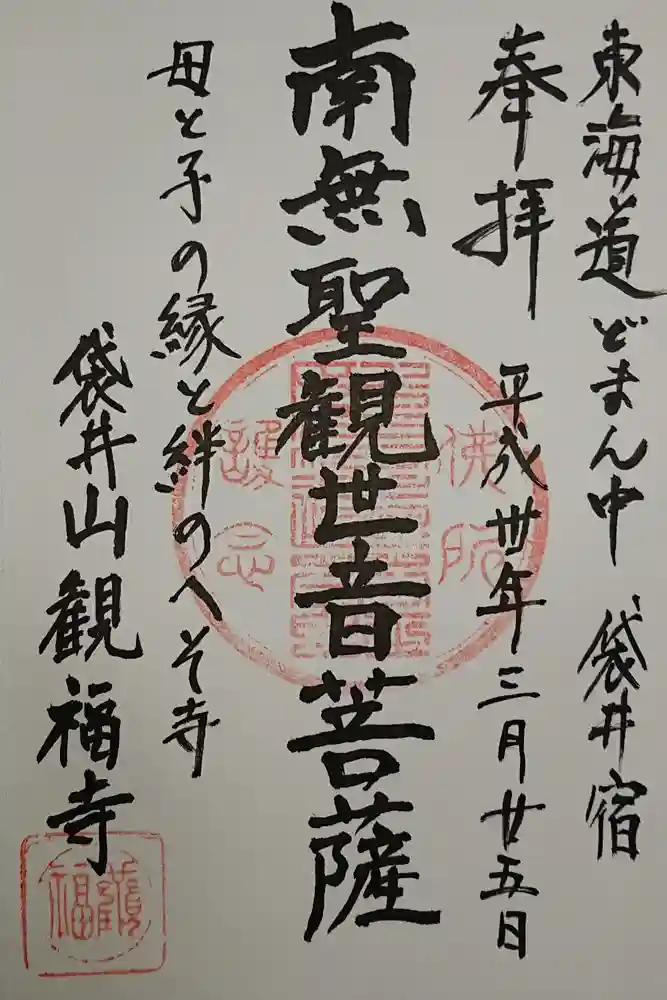 東海道どまん中 袋井宿
奉拝 平成丗年三月廿五日
南無聖観世音菩薩
母と子の縁と絆のへそ寺
袋井山観福寺